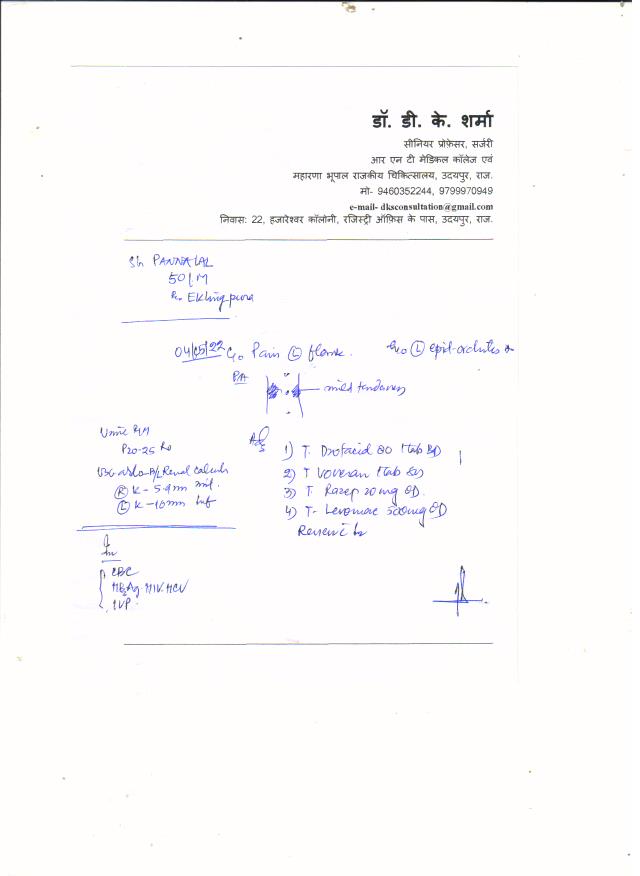 डॉ. डी. के. शर्मा
सीनियर प्रोफ़ेसर, सर्जरी
आर एन टी मेडिकल कॉलेज एवं
महारणा भूपाल राजकीय चिकित्सालय, उदयपुर, राज.
मो- 9460352244, 9799970949
e-mail- dksconsultation@gmail.com
निवास: 22, हजारेश्वर कॉलोनी, रजिस्ट्री ऑफ़िस के पास, उदयपुर, राज.
Sh PANNALAL
50/M
R/o Ekling pura
04/05/22 C/o Pain (L) flank. H/o (L) epid-orchitis
PA
mild tenderness
Urine R/M
P20-25
B/L Renal calculi
(R) K - 5.9mm mid.
(L) K - 10mm
Adv
1) T. Drofacid 80 1tab BD
2) T Voveran 1tab BD
3) T. Razep 20mg OD.
4) T- Levomac 500mg OD
Review
Inv
CBC
HBsAg. HIV. HCV
IVP.